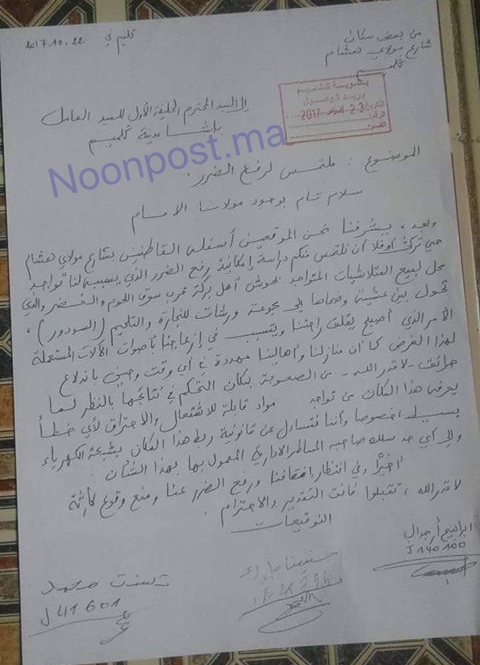 من بعض سكان
شارع مولاي هشام
كلميم
كليم في 2017.10.22
إلى السيد المحترم الخليفة الأول للسيد العامل
بلشا مدينة كلميم
23 2017
Noonpost.ma
الموضوع : ملتمس لرفع الضرر.
سلام تام بوجود مولانا الإمام
وبعد، يشرفنا نحن الموقعين أسفله القاطنين بشارع مولاي هشام
حي تركت أوفلا أن نلتمس منكم دراسة إمكانية رفع الضرر الذي يسببه لنا تواجد
محل لبيع المتلاشيات المتواجد بحوش أهل بركة قرب سوق اللحوم والخضر والذي
تحول بين عشية وضحاها إلى مجموعة ورشات للنجارة والتلحيم (السودور)،
الأمر الذي أصبح يقلق راحتنا ويتسبب في إزعاجنا بأصوات الآلات المستعملة
لهذا الغرض كما أن منازلنا وأهالينا مهددة في أي وقت وحين باندلاع
حرائق - لا قدر الله - من الصعوبة بمكان التحكم في نتائجها بالنظر لما
يعرفه هذا المكان من تواجد مواد قابلة للاشتعال والاحتراق لأي خطأ
بسيط، خصوصا وأننا نتساءل عن قانونية ربط هذا المكان بشبكة الكهرباء
وإلى أي حد سلك صاحبه المساطر الإدارية المعمول بها بهذا الشأن
أخيرا وفي انتظار إنصافنا ورفع الضرر عنا ومنع وقوع كارثة
لا قدر الله، تقبلوا فائق التقدير والاحترام.
التوقيعات
J140100
J41601